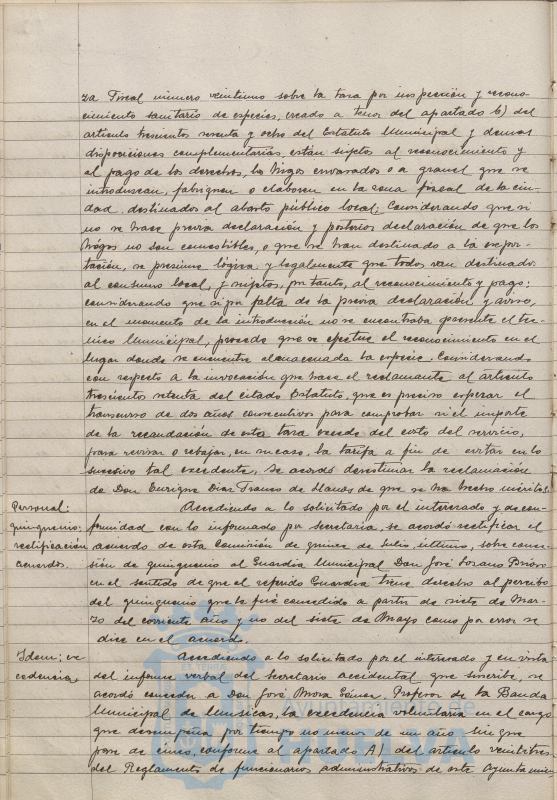 za Fiscal número veintiuno sobre la tasa por inspección y recono-
cimiento sanitario de especies, creado a tenor del apartado b) del
artículo trescientos sesenta y ocho del Estatuto Municipal y demas
disposiciones complementarias, están sujetos al reconocimiento y
al pago de los derechos, los higos envasados o a granel que se
introduzcan, fabriquen o elaboren en la zona fiscal de la ciu-
dad, destinados al abasto público local; Considerando que si
no se hace previa declaración y posterior declaración de que los
higos no son comestibles, o que se han destinado a la expor-
tación, se presume lógica y legalmente que todos van destinados
al consumo local, y sujetos, por tanto, al reconocimiento y pago;
considerando que si por falta de la previa declaración y aviso,
en el momento de la introducción no se encontraba presente el téc-
nico Municipal, procede que se efectue el reconocimiento en el
lugar donde se encuentre almacenada la especie. Considerando
con respecto a la invocación que hace el reclamante al artículo
trescientos setenta del citado Estatuto, que es preciso esperar el
transcurso de dos años consecutivos para comprobar si el importe
de la recaudación de esta tasa excede del costo del servicio,
para revisar o rebajar, en su caso, la tarifa a fin de evitar en lo
sucesivo tal excedente, se acordó desestimar la reclamación
de Don Enrique Díaz Franco de Llanos de que se ha hecho mérito.
Personal:
quinquenio:
rectificación
acuerdo.
Accediendo a lo solicitado por el interesado y de con-
formidad con lo informado por Secretaría, se acordó rectificar el
acuerdo de esta Comisión de quince de Julio último, sobre conce-
sión de quinquenio al Guardia Municipal Don José Lozano
en el sentido de que el referido Guardia tiene derecho al percibo
del quinquenio que le fué concedido a partir de siete de Mar-
zo del corriente año y no del siete de Mayo como por error se
dice en el acuerdo.
Idem: ex
cedencia
Accediendo a lo solicitado por el interesado y en vista
del informe verbal del Secretario accidental que suscribe, se
acordó conceder a Don José Mora Gómez, Profesor de la Banda
Municipal de Músicas, la excedencia voluntaria en el cargo
que desempeña por tiempo no menos de un año sin que
pase de cinco, conforme al apartado A) del artículo veintitres
del Reglamento de funcionarios administrativos de este Ayuntamien-
Ayuntamiento de
HUELVA